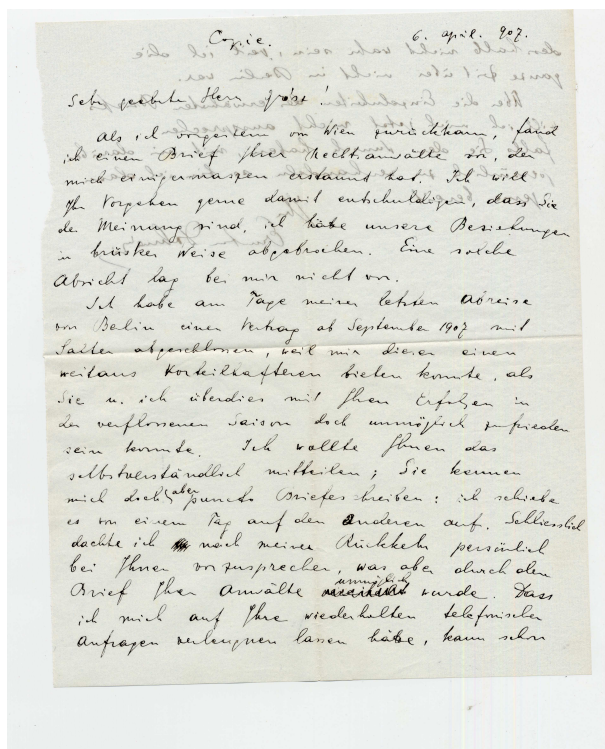 Copie. 6. April. 907.
Sehr geehrter Herr Gross!
Als ich vorgestern von Wien zurückkam, fand
ich einen Brief Ihrer Rechtsanwälte vor, der
mich einigermaszen erstaunt hat. Ich will
Ihr Vorgehen gerne damit entschuldigen, dass Sie
der Meinung sind, ich hätte unsere Beziehungen
in brüsker Weise abgebrochen. Eine solche
Absicht lag bei mir nicht vor.
Ich habe am Tage meiner letzten Abreise
von Berlin einen Vertrag ab September 1907 mit
Salter abgeschlossen, weil mir dieser einen
weitaus Vorteilhafteren bieten konnte, als
Sie u. ich überdies mit Ihren Erfolgen in
der verflossenen Saison doch unmöglich zufrieden
sein konnte. Ich wollte Ihnen das
selbstverständlich mitteilen; Sie kennen
mich doch aber puncto Briefschreiben: ich schiebe
es von einem Tag auf den anderen auf. Schliesslich
dachte ich nach meiner Rückkehr persönlich
bei Ihnen vorzusprechen, was aber durch den
Brief Ihrer Anwälte unmöglich wurde. Dass
ich mich auf Ihre wiederholten telefonischen
Anfragen verleugnen lassen hätte, kann schon